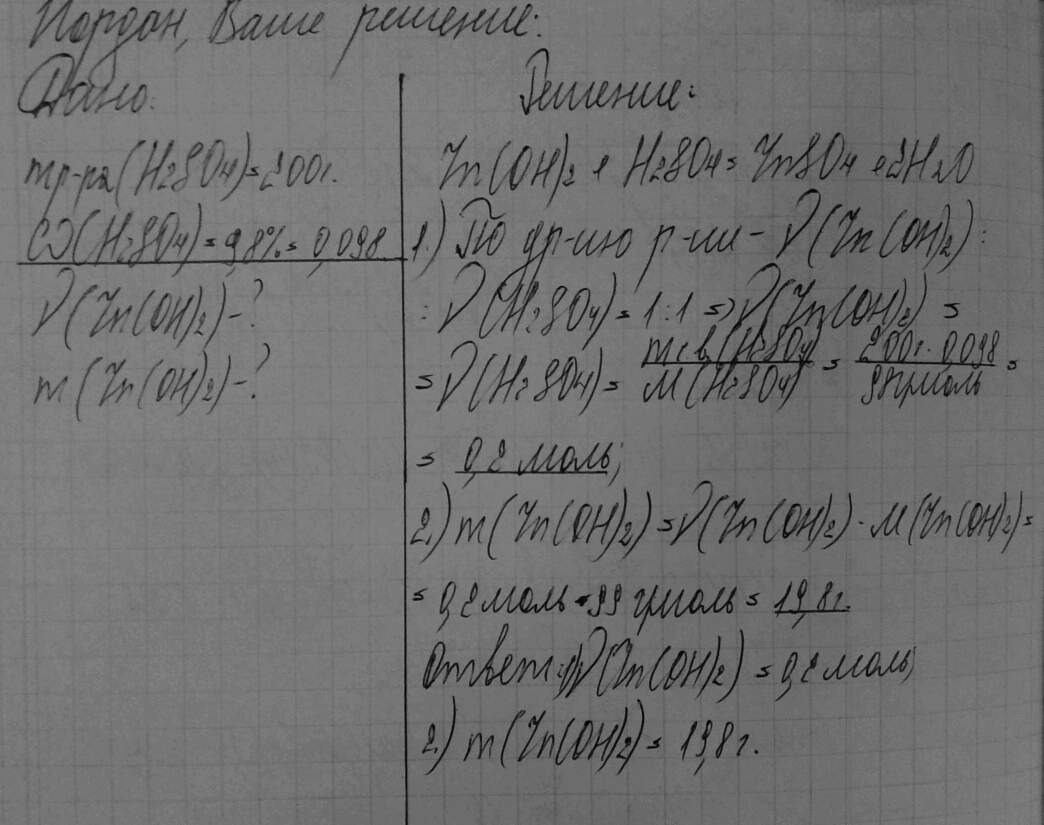 Йордан, Ваше решение:
Дано:
mр-ра(H2SO4)=200г.
ω(H2SO4)=9,8%=0,098
ν(Zn(OH)2)-?
m(Zn(OH)2)-?
Решение:
Zn(OH)2 + H2SO4 = ZnSO4 + 2H2O
1.) По ур-ию р-ии - ν(Zn(OH)2) :
: ν(H2SO4) = 1:1 => ν(Zn(OH)2) =
= ν(H2SO4) = mв-ва(H2SO4)/M(H2SO4) = 200г. · 0,098/98г/моль =
= 0,2 моль;
2.) m(Zn(OH)2) = ν(Zn(OH)2) · M(Zn(OH)2) =
= 0,2 моль · 99 г/моль = 19,8г.
Ответ: 1) ν(Zn(OH)2) = 0,2 моль;
2.) m(Zn(OH)2) = 19,8 г.